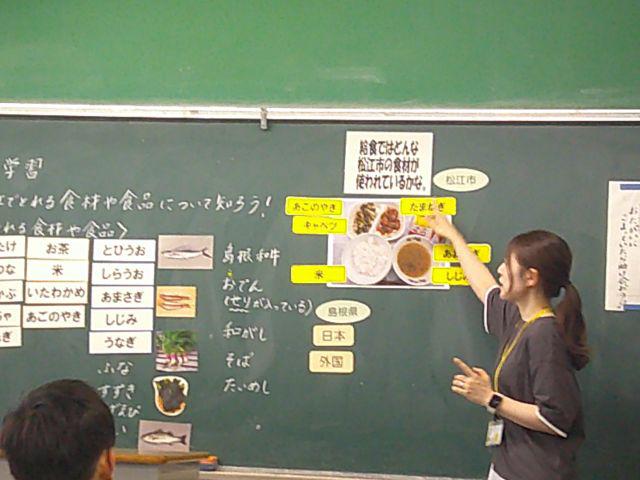 学習
でとれる食材や食品について知ろう!
れる食材や食品〉
お茶
米
いたわかめ
あごのやき
とびうお
しらうお
あまさぎ
しじみ
うなぎ
ふな
すずき
島根和牛
おでん
(せりが入っている)
和がし
そば
たいめし
給食ではどんな
松江市の食材が
使われているかな。
松江市
あごのやき
キャベツ
米
たまねぎ
しじ
島根県
日本
外国